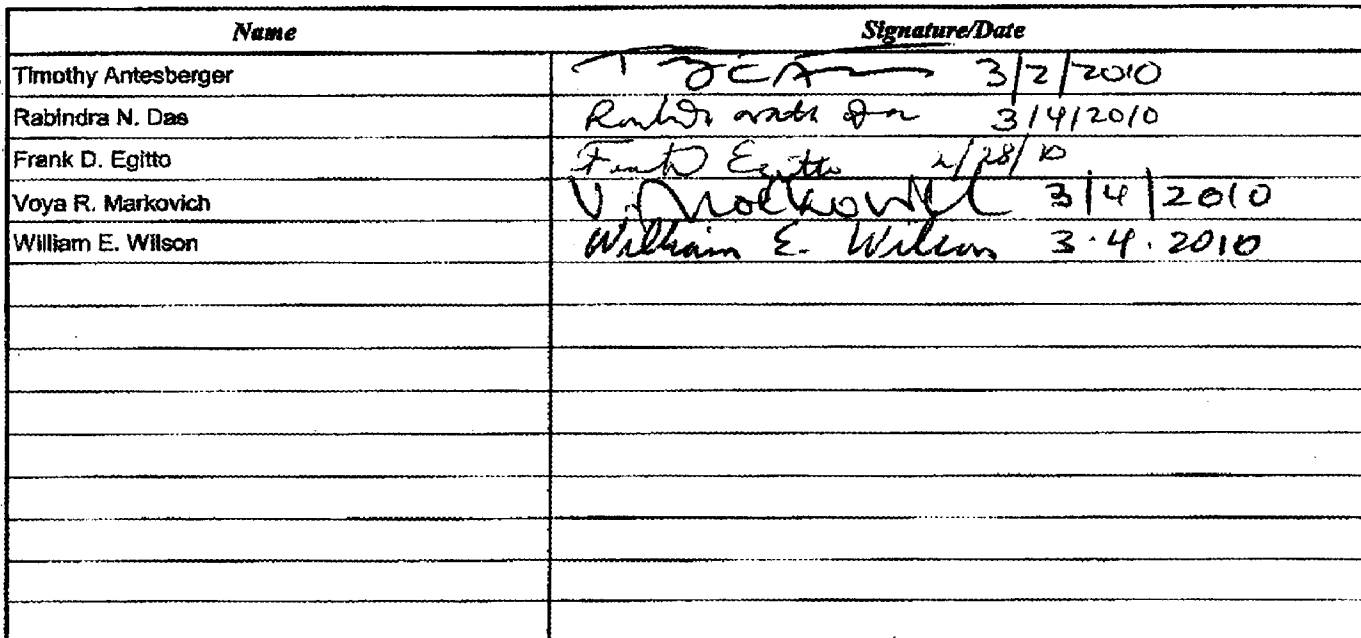 Name Signature/Date
Timothy Antesberger 3/2/2010
Rabindra N. Das 3/4/2010
Frank D. Egitto Frank D Egitto 2/28/10
Voya R. Markovich V. Markovich 3/4/2010
William E. Wilson William E. Wilson 3.4.2010